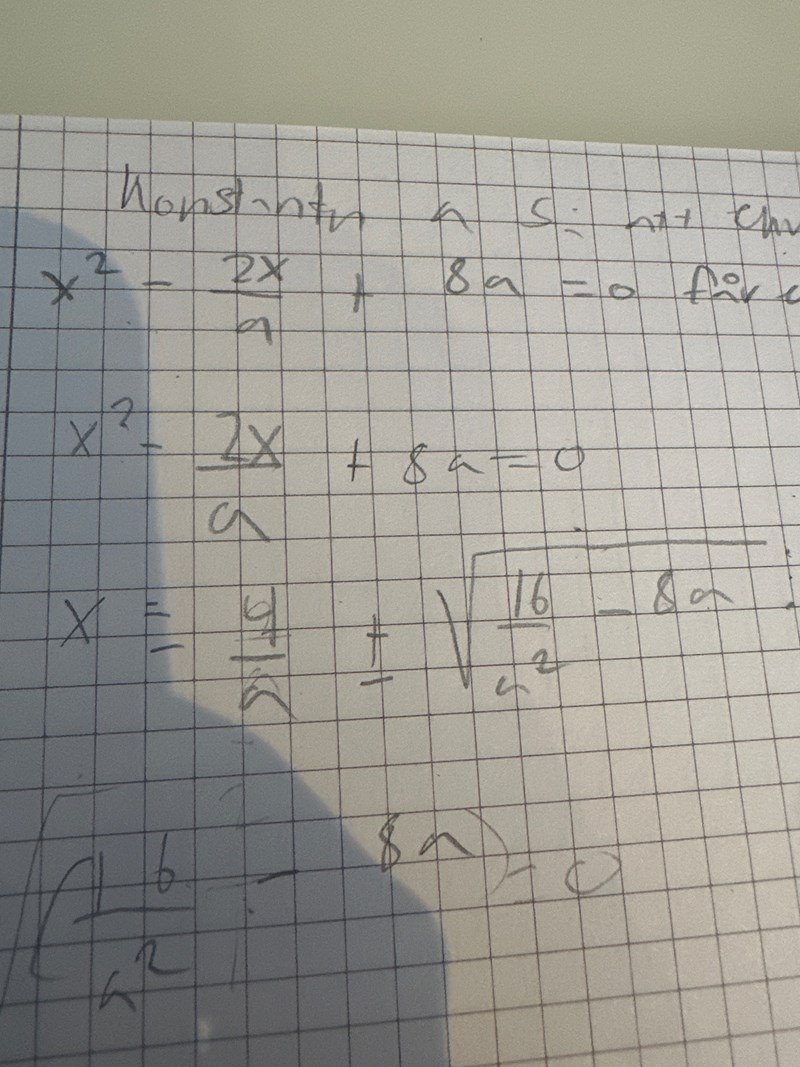 Konstanten a
x² - 2x/a + 8a = 0 för
x² - 2x/a + 8a = 0
x = 4/a ± √(16/a² - 8a)
(16/a² - 8a) = 0